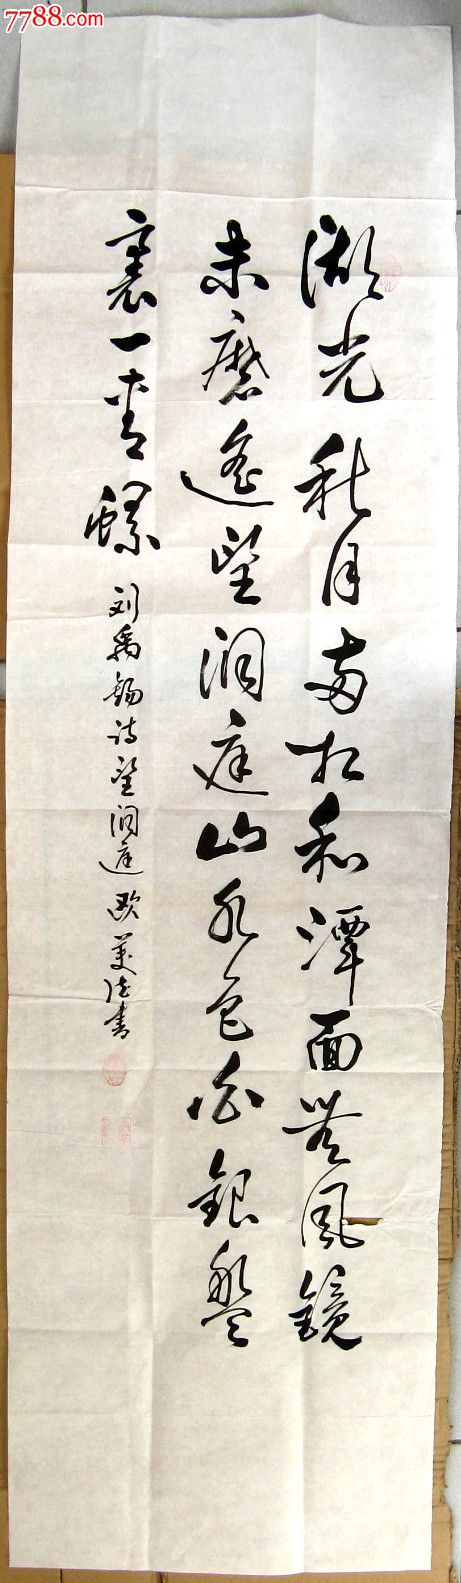 7788.com
湖光秋月两相和潭面無风镜
未磨遥望洞庭山水色白銀盤
裏一青螺
刘禹锡诗望洞庭 欧美 书